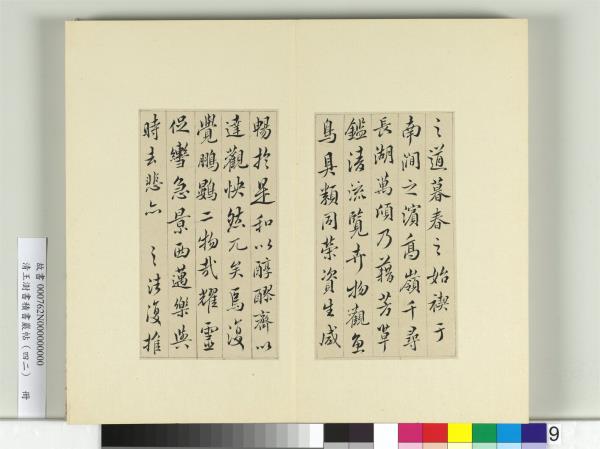 之道暮春之始禊于
南澗之濱高嶺千尋
長湖萬頃乃藉芳草
鑑清流覽卉物觀魚
鳥具類同榮資生咸
暢於是和以醇醪齊以
達觀快然兀矣焉復
覺鵬鷃二物哉耀靈
促轡急景西邁樂與
時去悲亦 之往復推
故書 000762N000000000
清王澍書積書巖帖（四二） 冊
9